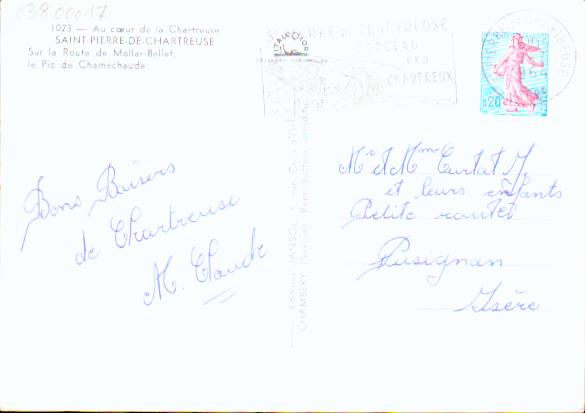 038 000 17
1023 — Au cœur de la Chartreuse
SAINT-PIERRE-DE-CHARTREUSE
Sur la Route de Mollar-Bellet,
le Pic de Chamechaude.
ST PIERRE DE CHARTREUSE
BERCEAU
DES
CHARTREUX
0,20
Bons Baisers
de Chartreuse
M. Claude
Editions JANSOL
CHAMBERY (Savoie) Reproduction interdite
Mr et Mme Curtat J.
et leurs enfants
Petite
Pusignan
Isère